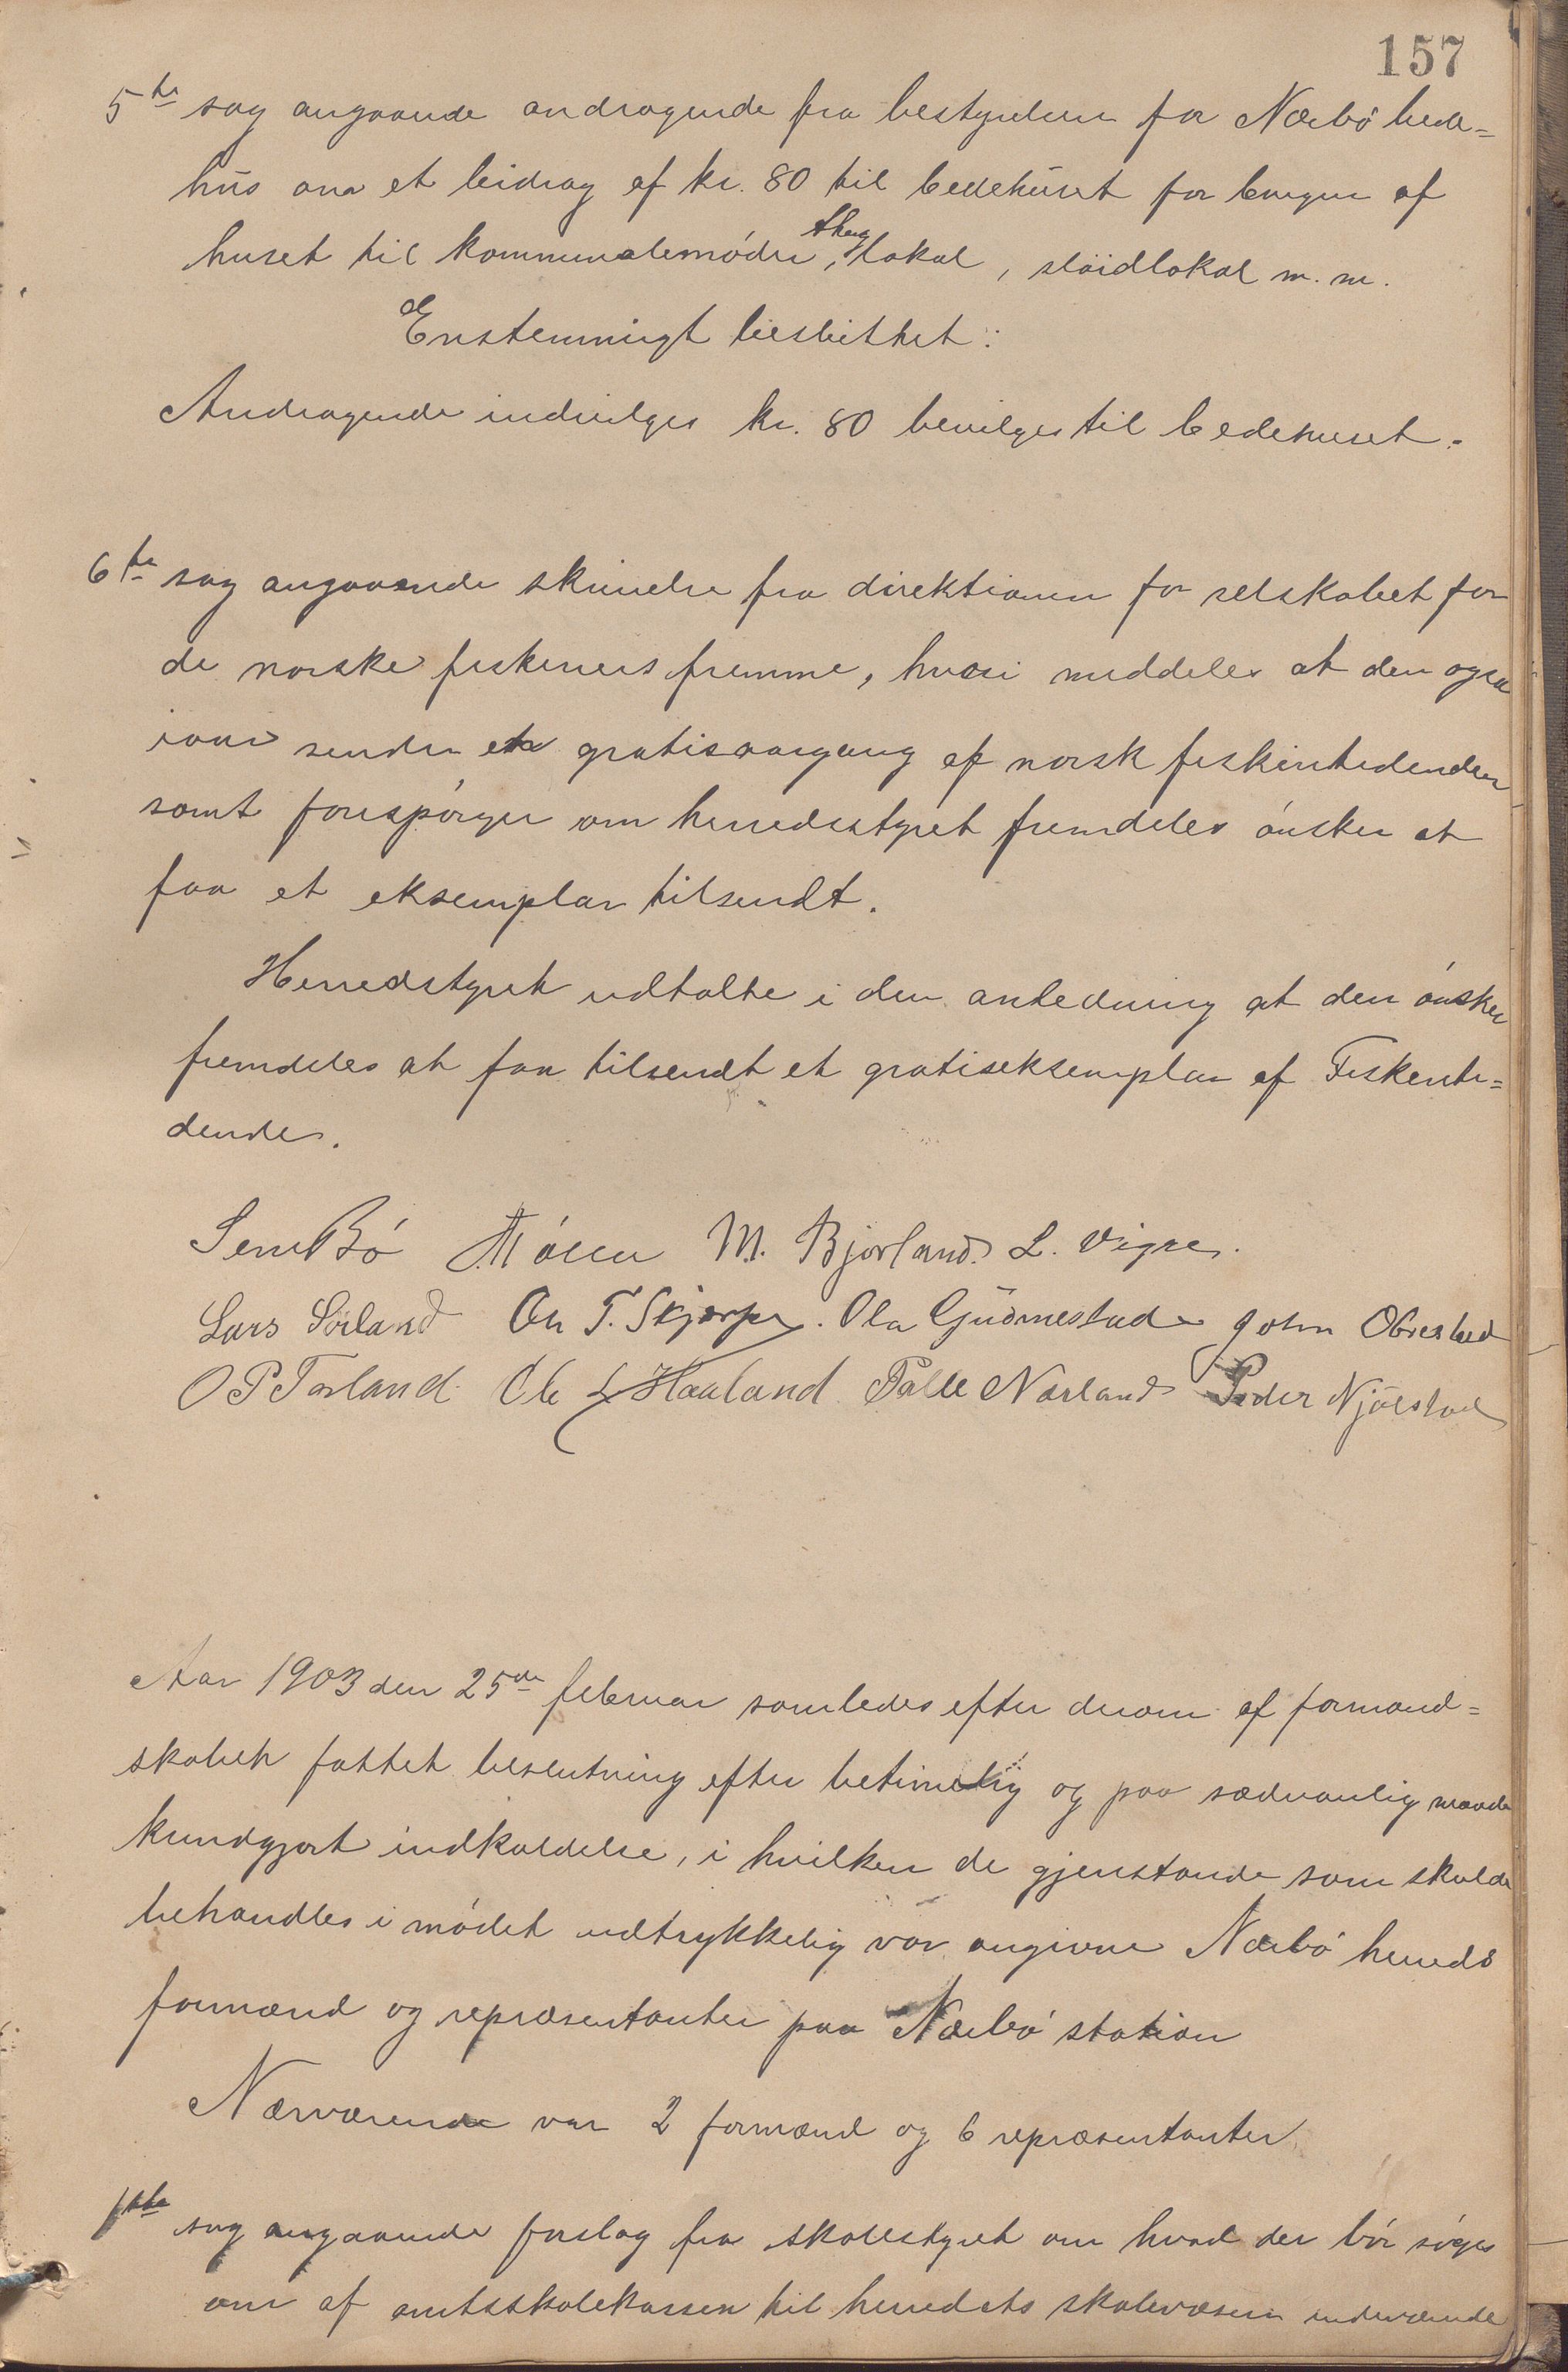 157
5te sag angaaende andragende fra bestyrelsen for Nærbø bede-
hus om et bidrag af kr. 80 til bedehuset for brugen af
huset til kommunalemøder, thinglokal, sløidlokal m. m.
Enstemmigt besluttet:
Andragende indvilges kr. 80 bevilges til bedehuset.
6te sag angaaende skrivelse fra direktionen for selskabet for
de norske fiskeriers fremme, hvori meddeles at den ogsaa
iaar sender en gratisaargang af norsk fiskeritidende
samt forespørger om herredsstyret fremdeles ønsker at
faa et eksemplar tilsendt.
Herredstyret udtalte i den anledning at den ønsker
fremdeles at faa tilsendt et gratiseksemplar af Fiskeriti-
dende.
Sem Bø M. Bjorland. L. Vigre.
Lars Sörland On T. Skjærpe. Ola Gudmestad John Obrestad
O P Torland Ole L Haaland Palle Nærland Peder Njølstad
Aar 1903 den 25de februar samledes efter derom af formand-
skabet fattet beslutning efter betimelig og paa sædvanlig maade
kundgjort indkaldelse, i hvilken de gjenstande som skulde
behandles i mødet udtrykkelig var angivne Nærbø herreds
formænd og repræsentanter paa Nærbø station
Nærværende var 2 formænd og 6 repræsentanter
1ste sag angaaende forslag fra skolestyret om hvad der bør søges
om af amtsskolekassen til herredets skolevæsen indeværende